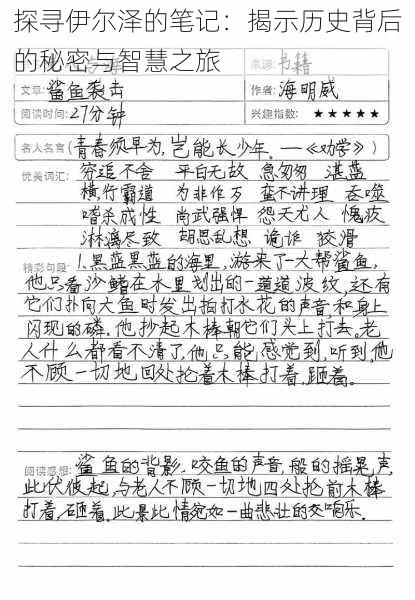 探寻伊尔泽的笔记：揭示历史背后
的秘密与智慧之旅
来源：书籍
文章：鲨鱼袭击
作者：海明威
阅读时间：27分钟
兴趣指数：★★★★★
名人名言（青春须早为，岂能长少年。—《劝学》）
优美词汇：穷追不舍 平白无故 急匆匆 湛蓝
横行霸道 为非作歹 蛮不讲理 吞噬
嗜杀成性 尚武强悍 怨天尤人 愧疚
淋漓尽致 胡思乱想 诡诈 狡滑
精彩句段 1.黑蓝黑蓝的海里，游来了一大帮鲨鱼，
他只看沙鳍在水里划出的一道道波纹，还有
它们扑向大鱼时发出拍打水花的声音，和身上
闪现的磷。他抄起木棒朝它们头上打去。老
人什么都看不清了，他只能感觉到，听到，他
不顾一切地回处抡着木棒打着，跙着。
阅读感想：鲨鱼的背影，咬鱼的声音，船的摇晃声，
此伏彼起，与老人不顾一切地四处抢前木棒
打着，砸着，此景此情宛如一曲悲壮的交响乐．